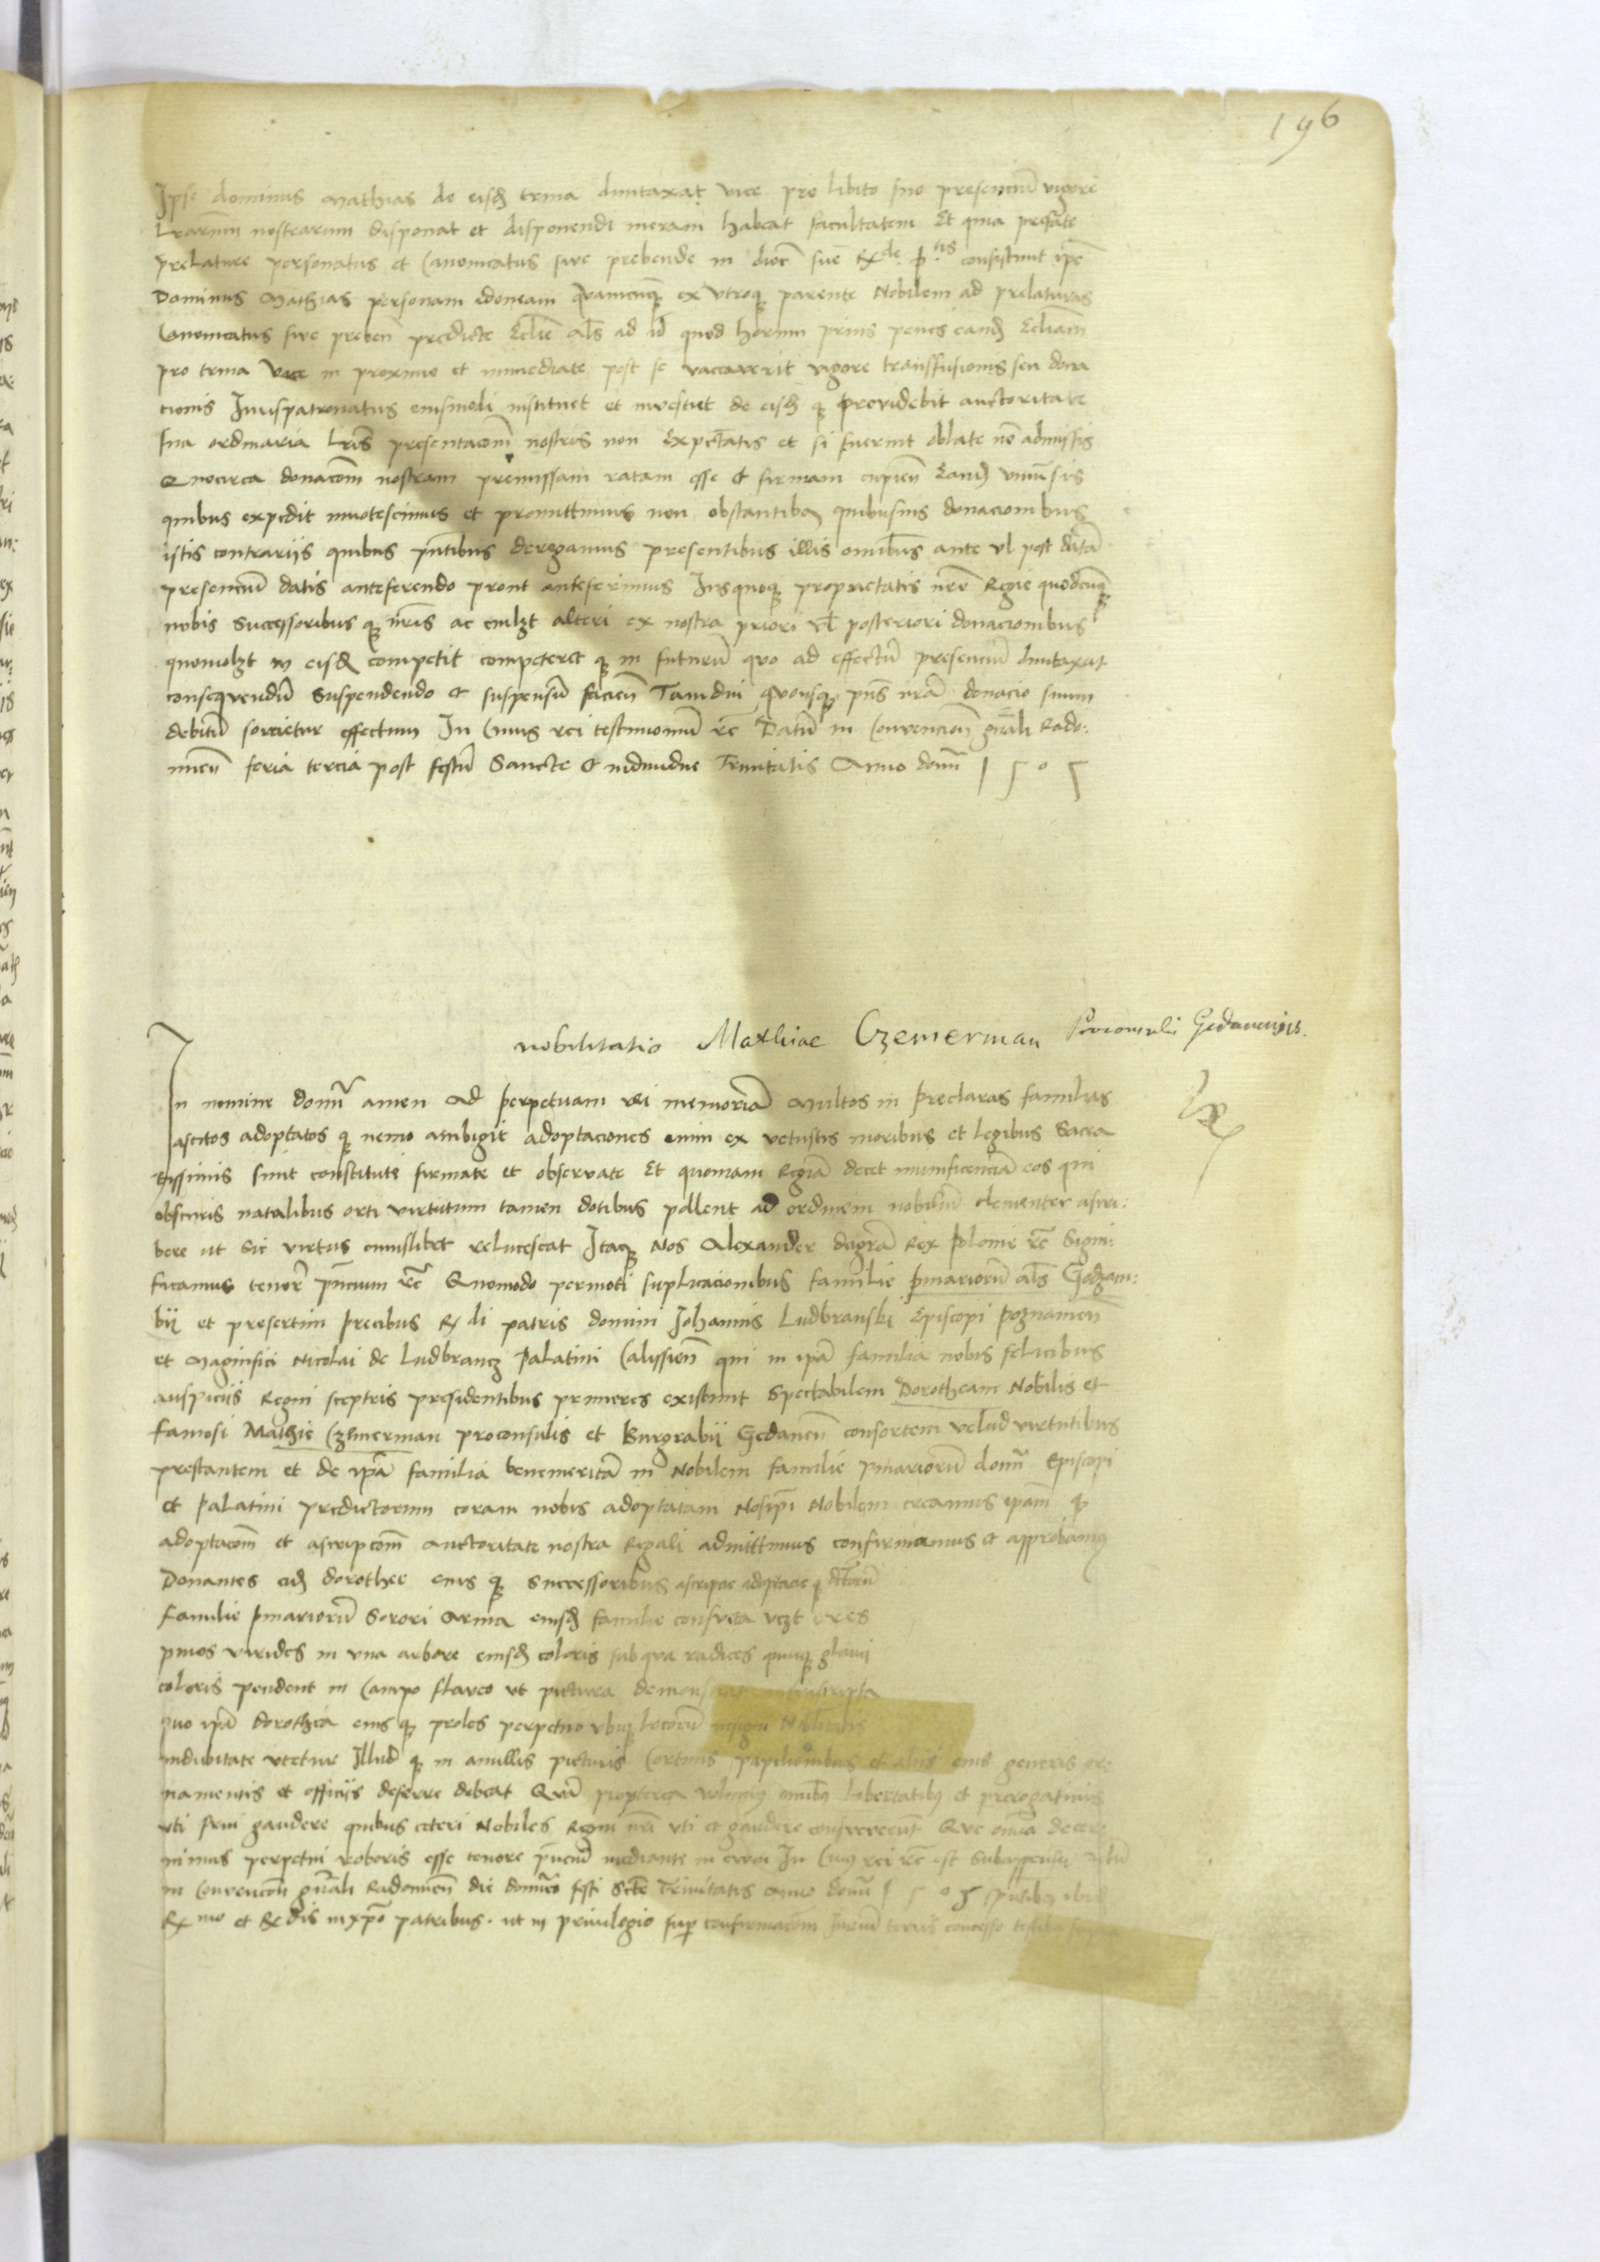 196
Ipse dominus Mathias de eisd trina duntaxat vice pro libito suo presenciũ vigore
Lrarum nostrarum disponat et disponendi meram habeat facultatem Et quia prefate
prelature personatus et Canonicatus sive prebende in dioc sue consistunt ipe
Dominus Mathias personam idoneam quamcunq ex utroq parente Nobilem ad prelaturas
Canonicatus sive preben predicte Eclie als ad id quod horum prius penes eand Ecliam
pro trina vice in proximo et immediate post se vaccaverit vigore transfusionis seu dona
cionis Iurispatronatus eiusmodi instituet et investiet de eisd q providebit auctoritate
sua ordinaria lris presentacom nostris non Expectatis et si fuerint oblate non admissis
Quocirca donacom nostram premissam ratam esse et firmam cupien Eand universis
quibus expedit innotescimus et promittimus non obstantibus quibusvis donacionibus
istis contrariis quibus pntibus derogamus presentibus illis omibus ante vl post datã
presenciũ datis anteferendo prout anteferimus Iusquoq proprietatis nre Regie quodcunq
nobis Successoribus q nris ac cuilzt alteri ex nostra priori vl posteriori donacionibus
quomolzt in eisd competit competeret q in futurũ quo ad effectũ presenciũ duntaxat
consequendũ Suspendendo et suspensũ facien Tamdiu quousq pns nra donacio suum
debitũ sorcietur effectum In Cuius rei testimoniũ rc Datũ in Convencion gnali Rado:
mien feria tercia post festũ Sancte et individue Trinitatis Anno domi 1505
nobilitatio Mathiae Czemerman Proconsulis Gedanensis.
In nomine domi amen Ad perpetuam rei memoriã Multos in preclaras familias
ascitos adoptatos q nemo ambigit adoptaciones enim ex vetustis moribus et legibus Sacra
tissimis sunt constitute firmate et observate Et quoniam Regiã decet munificenciã eos qui
obscuris natalibus orti virtutum tamen dotibus pollent ad ordinem nobiliũ clementer ascri:
bere ut sic virtus cuiuslibet relucescat Itaq Nos Alexander degra Rex Polonie rc Signi:
ficamus tenore pncium rc Quomodo permoti suplicacionibus familie pniariorũ als Godzam:
bii et presertim precibus R di patris domini Iohannis Ludbranski Episcopi Poznanien
et Magnifici Nicolai de Ludbrancz Palatini Calissien qui in ipa familia nobis felicibus
auspiciis Regni sceptris presidentibus primeres existunt Spectabilem Dorotheam Nobilis et
famosi Mathie Czimerman proconsulis et Burgrabii Gedanen consortem velud virtutibus
prestantem et de ipa familia benemeritã in Nobilem familie pniariorũ domi Episcopi
et Palatini predictorum coram nobis adoptatam Nosipi Nobilem creamus ipam q
adoptacom et ascripcom auctoritate nostra Regali admittimus confirmamus et approbamus
Donantes eid dorothee eius q Successoribus ascripte adoptate q dictorũ
familie pniariorũ Sorori Arma eiusd familie consveta vczt tres
pinos virides in una arbore eiusd coloris sub qua radices quinq glauci
coloris pendent in Campo flaveo ut pictura
quo ipa Dorothea eius q proles perpetuo ubiq locorũ
indubitate utetur Illud q in anullis picturis Cortinis papilionibus et aliis eius generis or
namentis et officiis deferre debeat Quã propterea volumus omibus libertatibus et prerogativis
uti frui gaudere quibus ceteri Nobiles Regni nri uti et gaudere consveverunt Que omia decer
nimus perpetui roboris esse tenore pnciũ mediante in evum In Cuius rei rc est Subappensu
in Convencon gnali Radomien die dominico festi Scte Trinitatis Anno domi 1505 pntibus ibid
R mo et R dis inxpo patribus. ut in privilegio sup confirmacom